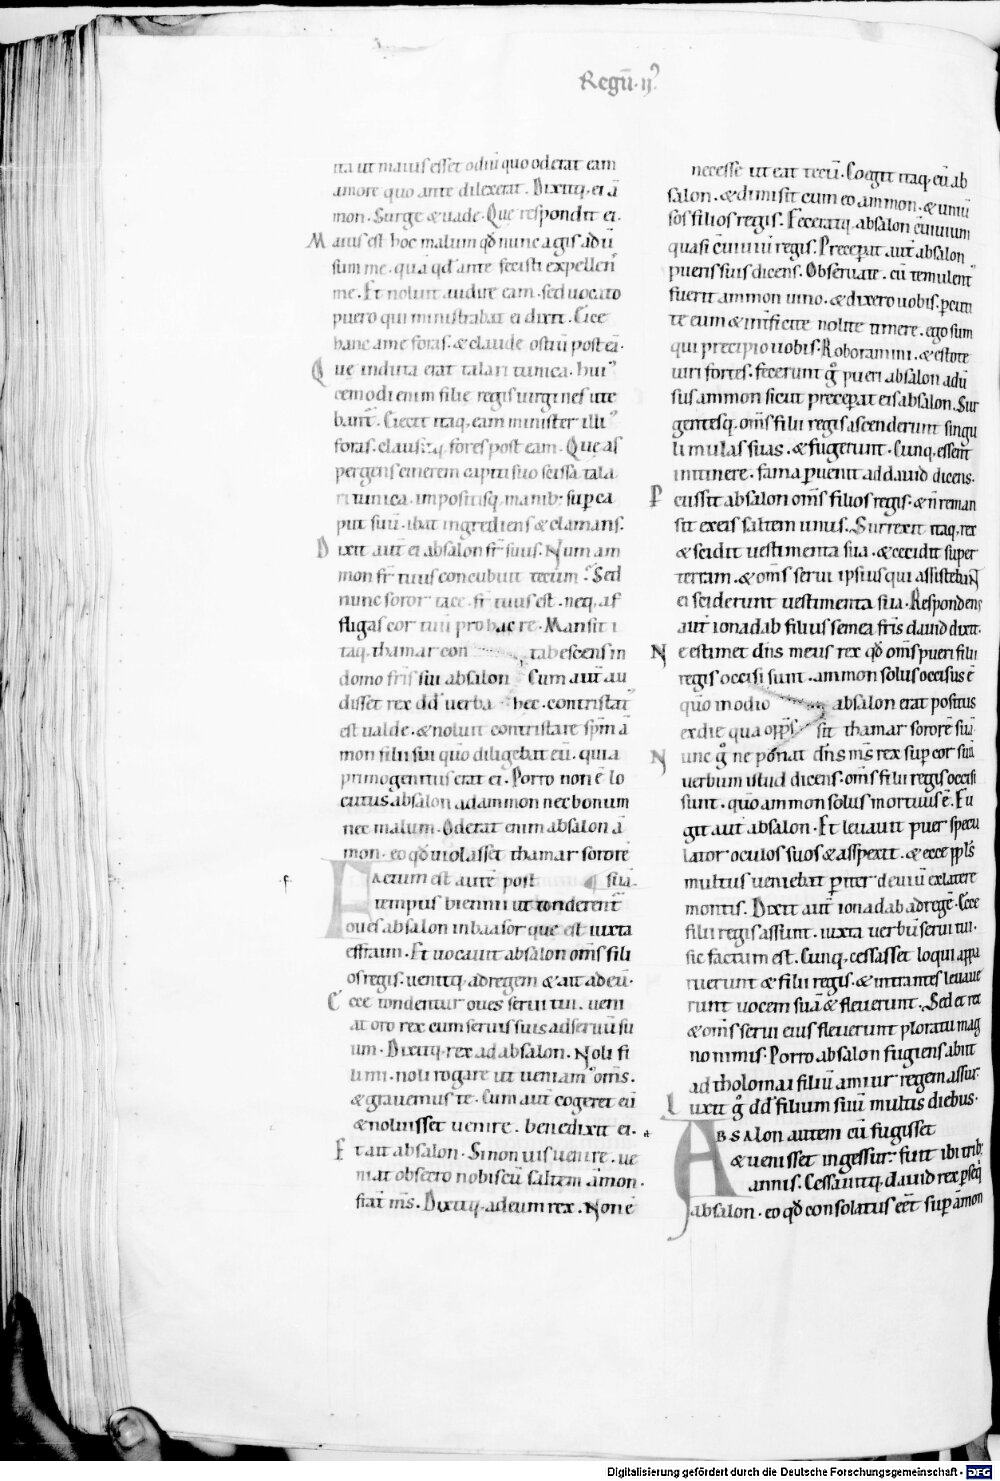 Regū · ijꝰ
ita ut maius esset odiū quo oderat eam
amore quo ante dilexerat . Dixitq; ei ā
mon . Surge & uade . Que respondit ei .
Maius est hoc malum qđ nunc agis aduͥ
sum me . quā qđ ante fecisti expellenſ
me . Et noluit audire eam . sed uocato
puero qui ministrabat ei dixit . Eice
hanc a me foras . & claude ostiū post eā .
Que induta erat talari tunica . huiꝰ
cemodi enim filie regis uirgines ute
bant̄ . Eiecit itaq; eam minister illiꝰ
foras . clausitq; fores post eam . Que as
pergens cinerem capiti suo scissa tala
ri tunica . impositisq; manib; sup ca
put suū . ibat ingrediens & clamans .
Dixit aut̄ ei absalon fr̄ suus . Num am
mon fr̄ tuus concubuit tecum . Sed
nunc soror tace . fr̄ tuus est . neq; af
fligas cor tuū pro hac re . Mansit i
taq; thamar con tabescens in
domo fr̄is sui absalon Cum aut̄ au
disset rex dd̄ uerba hec . contristatꝰ
est ualde . & noluit contristare sp̄m ā
mon filii sui qm̄o diligebat eū . quia
primogenitus erat ei . Porro non ē lo
cutus absalon ad ammon nec bonum
nec malum . Oderat enim absalon ā
mon . eo qđ uiolasset thamar sororē
Factum est autē post ¶ suā .
tempus biennii ut tonderent̄
oues absalon in baasor que est iuxta
effraim . Et uocauit absalon om̄s fili
os regis . uenitq; ad regem & ait ad eū .
Ecce tondentur oues serui tui . ueni
at oro rex cum seruis suis ad seruū su
um . Dixitq; rex ad absalon . Noli fi
li mi . noli rogare ut ueniamꝰ om̄s .
& grauemus te . Cum aut̄ cogeret eū
& noluisset uenire . benedixit ei .
Et ait absalon . Si non uis uenire . ue
niat obsecro nobiscū saltem āmon .
frat̄ m̄s . Dixitq; ad eum rex . Non ē
necesse ut eat tecū . Coegit itaq; eū ab
salon . & dimisit cum eo ammon . & uniū
sos filios regis . Feceratq; absalon cūiuium
quasi cūiuiū regis . Precepat aut̄ absalon
pueris suis dicens . Obseruate . cū temulentꝰ
fuerit ammon uino . & dixero uobis . pcuti
te eum & intficite nolite timere . ego sum
qui precipio uobis . Roboramini . & estote
uiri fortes . fecerunt g° pueri absalon adū
sus ammon sicut precepat eis absalon . Sur
gentesq; om̄s filii regis ascenderunt singu
li mulas suas . & fugerunt . Cunq; essent
in itinere . fama puenit ad dauid dicens .
Percussit absalon om̄s filios regis . & n̄ reman
sit ex eis saltem unus . Surrexit itaq; rex
& scidit uestimenta sua . & cecidit super
terram . & om̄s serui ipsius qui assistebant
ei sciderunt uestimenta sua . Respondens
aut̄ ionadab filius semea fr̄is dauid dixit .
Ne estimet dn̄s meus rex qđ om̄s pueri filii
regis occisi sunt . ammon solus occisus ē
qm̄o in odio absalon erat positus
ex die qua opp̄s sit thamar sororē suā
Nunc g° ne ponat dn̄s m̄s rex sup cor suū
uerbum istud dicens . om̄s filii regis occisi
sunt . qm̄o ammon solus mortuus ē . Fu
git aut̄ absalon . Et leuauit puer specu
lator oculos suos & asspexit . & ecce ppl̄s
multus ueniebat p iter deuiū ex latere
montis . Dixit aut̄ ionadab ad regē . Ecce
filii regis assunt . iuxta uerbū serui tui .
sic factum est . Cunq; cessasset loqui appa
ruerunt & filii regis . & intrantes leuaue
runt uocem suā & fleuerunt . Sed et rex
& om̄s serui eius fleuerunt ploratu mag
no nimis . Porro absalon fugiens abiit
ad tholomai filiū amiur regem assur .
Luxit g° dd̄ filium suū multis diebus .
Absalon autem cū fugisset
& uenisset in gessur . fuit ibi trib;
annis . Cessauitq; dauid rex pseq̄
absalon . eo qđ consolatus eēt sup āmon
Digitalisierung gefördert durch die Deutsche Forschungsgemeinschaft - DFG